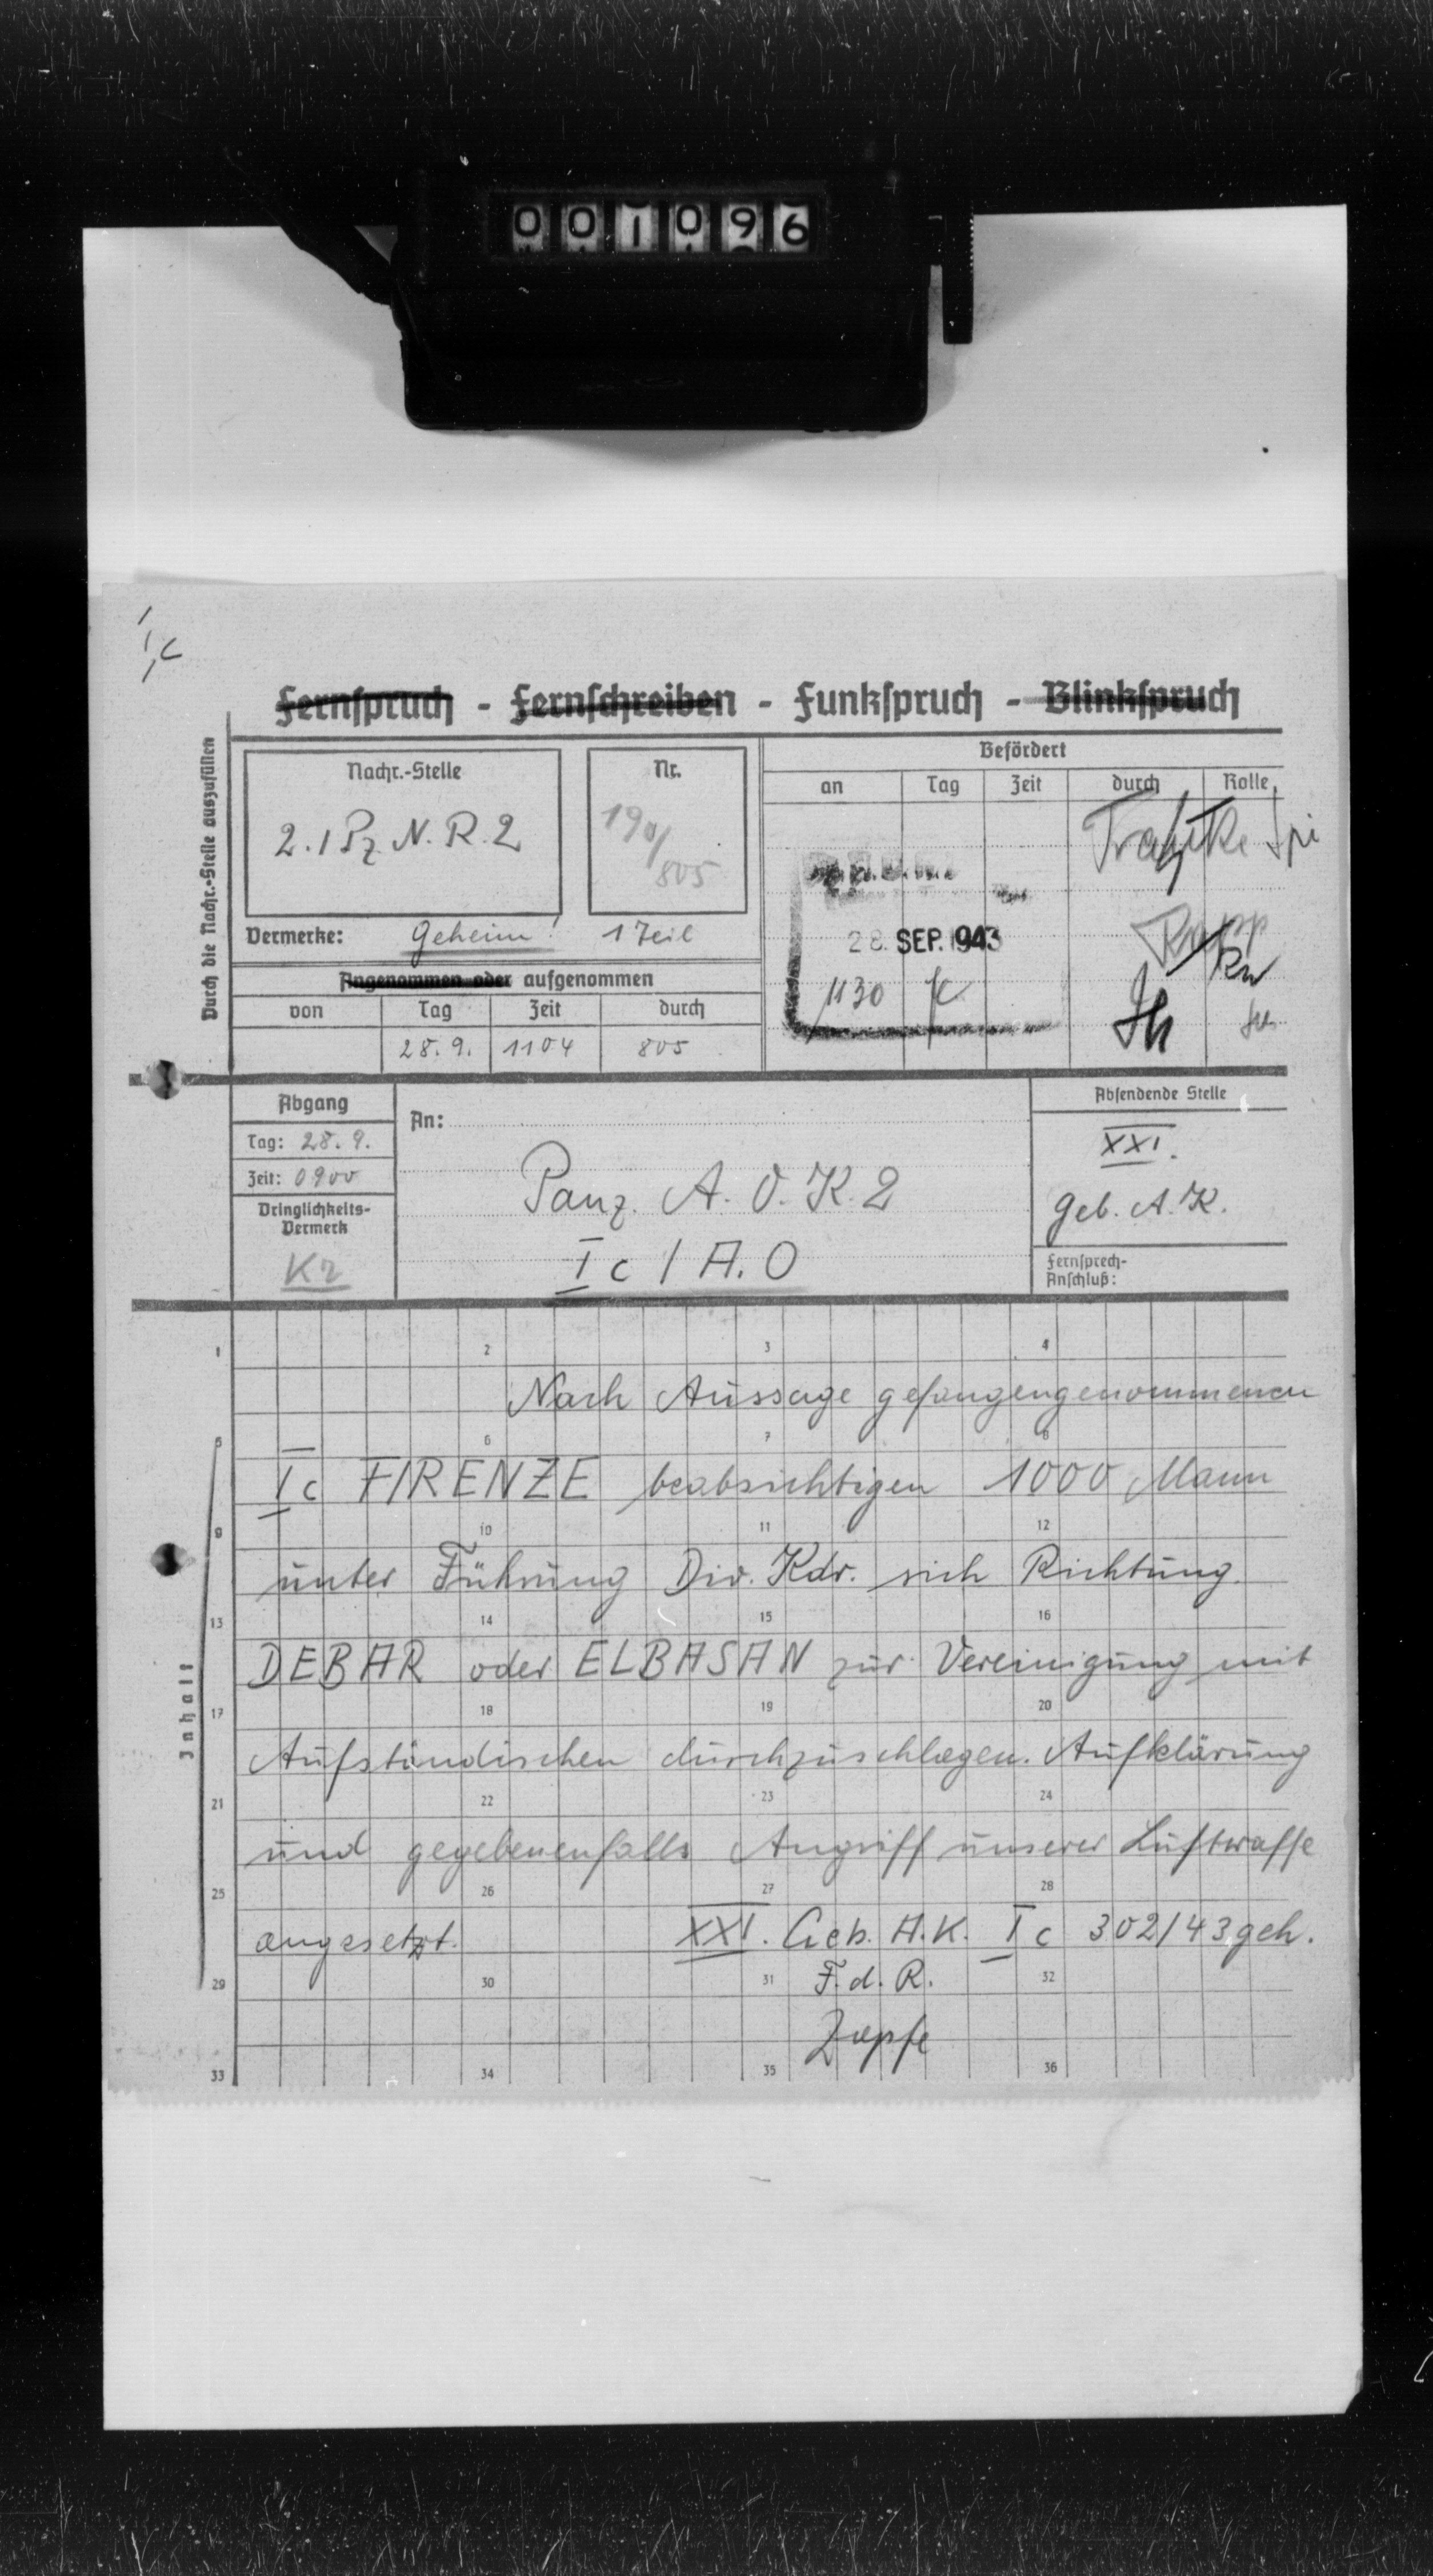 001096
Ic
Fernspruch - Fernschreiben - Funkspruch - Blinkspruch
Durch die Nachr.-Stelle auszufüllen
Nachr.-Stelle
2. / Pz. N. R. 2
Nr.
190/
805
Befördert
an Tag Zeit durch Rolle
Vermerke: Geheim! 1 Teil
28. SEP. 1943
1130
Angenommen oder aufgenommen
von Tag Zeit durch
28.9. 1104 805
Abgang
Tag: 28.9.
Zeit: 0900
Dringlichkeits-
Vermerk
KR
An:
Panz. A.O.K. 2
Ic / A.O
Absendende Stelle
XXI.
Geb. A.K.
Fernsprech-
Anschluß:
Inhalt
1 2 3 4
Nach Aussage gefangengenommenen
5 6 7 8
Ic FIRENZE beabsichtigen 1000 Mann
9 10 11 12
unter Führung Div. Kdr. sich Richtung
13 14 15 16
DEBAR oder ELBASAN zur Vereinigung mit
17 18 19 20
Aufständischen durchzuschlagen. Aufklärung
21 22 23 24
und gegebenenfalls Angriff unserer Luftwaffe
25 26 27 28
angesetzt. XXI. Geb. A.K. Ic 302/43 geh.
29 30 31 32
F.d.R.
Zapfe
33 34 35 36